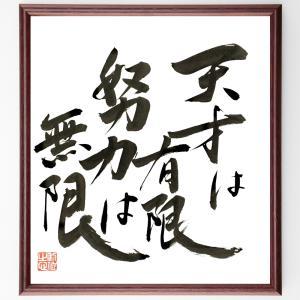 天才は
有限
努力は
無限